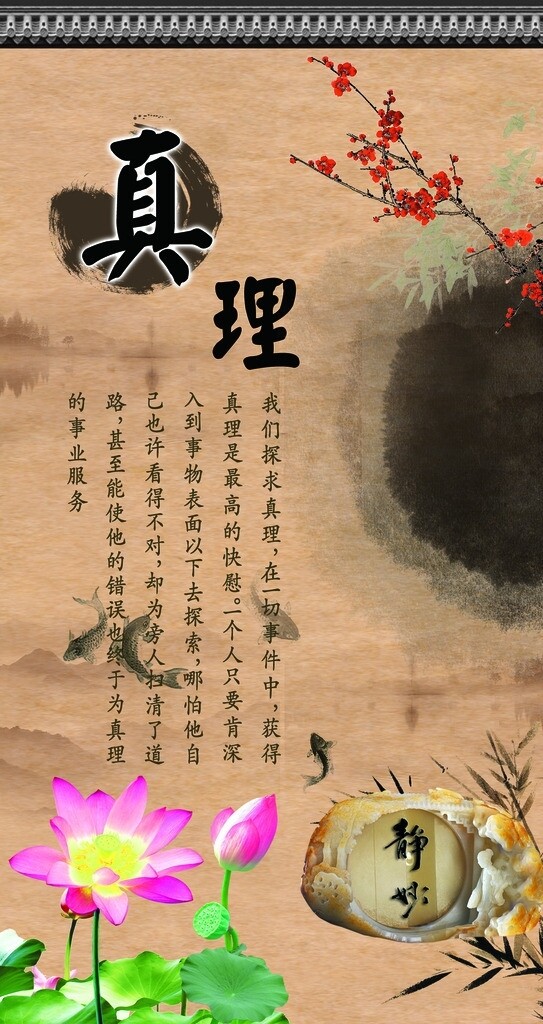 真
理
我们探求真理，在一切事件中，获得
真理是最高的快慰。一个人只要肯深
入到事物表面以下去探索，哪怕他自
己也许看得不对，却为旁人扫清了道
路，甚至能使他的错误也终于为真理
的事业服务
静
妙